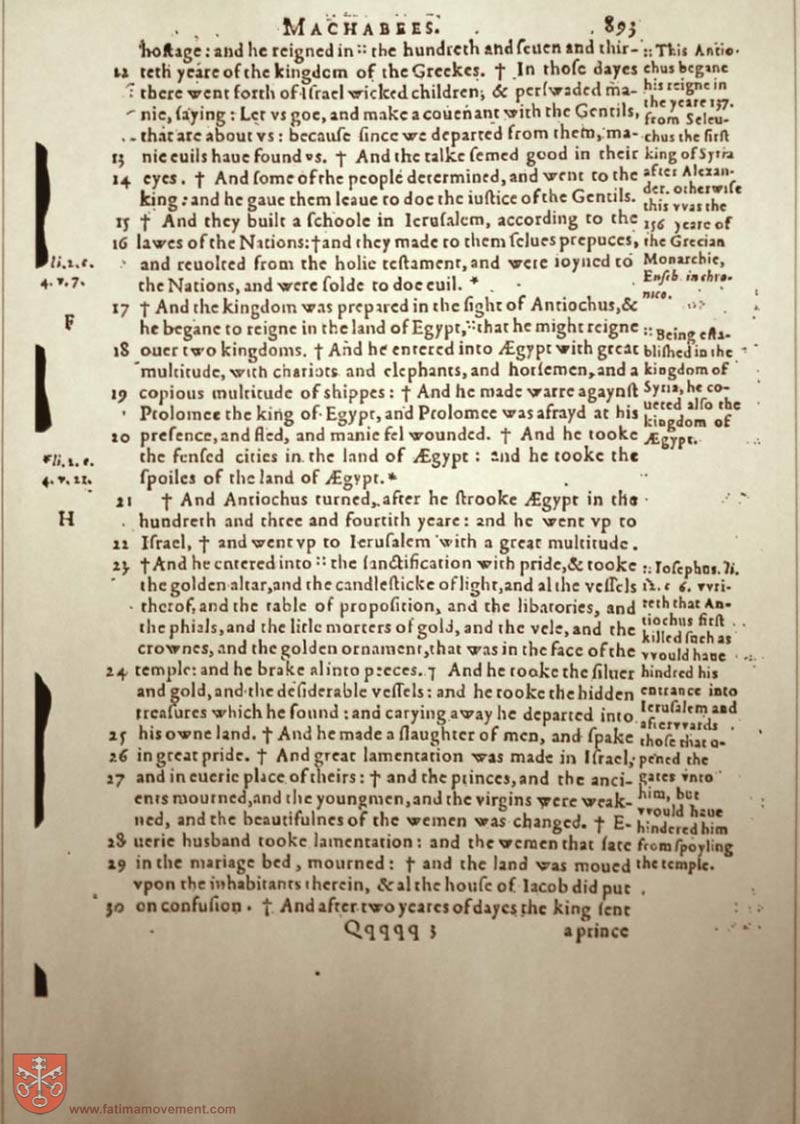 MACHABEES. 893
hoſtage: and he reigned in :: the hundreth and ſeuen and thir-
12 teth yeare of the kingdom of the Greekes. † In thoſe dayes
there went forth of Iſrael wicked children, & perſwaded ma-
nie, ſaying: Let vs goe, and make a couenant with the Gentils,
that are about vs: becauſe ſince we departed from them, ma-
13 nie euils haue found vs. † And the talke ſemed good in their
14 eyes. † And ſome of the people determined, and went to the
king: and he gaue them leaue to doe the iuſtice of the Gentils.
15 † And they built a ſchoole in Ieruſalem, according to the
16 lawes of the Nations: † and they made to them ſelues prepuces,
and reuolted from the holie teſtament, and were ioyned to
the Nations, and were ſolde to doe euil. *
17 † And the kingdom was prepared in the ſight of Antiochus, &
he began to reigne in the land of Egypt, :: that he might reigne
18 ouer two kingdoms. † And he entered into Ægypt with great
multitude, with chariots and elephants, and horſemen, and a
19 copious multitude of shippes: † And he made warre agaynſt
Ptolomee the king of Egypt, and Ptolomee was afrayd at his
20 preſence, and fled, and manie fel wounded. † And he tooke
the fenſed cities in the land of Ægypt: and he tooke the
ſpoiles of the land of Ægypt. *
21 † And Antiochus turned, after he ſtrooke Ægypt in the
hundreth and three and fourtith yeare: and he went vp to
22 Iſrael, † and went vp to Ieruſalem with a great multitude.
23 † And he entered into :: the ſanctification with pride, & tooke
the golden altar, and the candleſticke of light, and al the veſſels
therof, and the table of propoſition, and the libatories, and
the phials, and the litle morters of gold, and the vele, and the
crownes, and the golden ornament, that was in the face of the
24 temple: and he brake al into peeces. † And he tooke the ſiluer
and gold, and the deſiderable veſſels: and he tooke the hidden
treaſures which he found: and carying away he departed into
25 his owne land. † And he made a ſlaughter of men, and ſpake
26 in great pride. † And great lamentation was made in Iſrael,
27 and in euerie place of theirs: † and the princes, and the anci-
ents mourned, and the youngmen, and the virgins were weak-
ned, and the beautifulnes of the wemen was changed. † E-
28 uerie husband tooke lamentation: and the wemen that ſate
29 in the mariage bed, mourned: † and the land was moued
vpon the inhabitants therein, & al the houſe of Iacob did put
30 on confuſion. † And after two yeares of dayes the king ſent
Qqqqq 3 a prince
li. 2. c.
4. v. 7.
F
*li. 2. c.
4. v. 21.
H
:: This Antio-
chus begane
his reigne in
the yeare 137.
from Seleu-
chus the firſt
king of Syria
after Alexan-
der. otherwiſe
this vvas the
156 yeare of
the Grecian
Monarchie,
Euſeb. in chro-
nico.
:: Being eſta-
bliſhed in the
kingdom of
Syria, he co-
ueted alſo the
kingdom of
Ægypt.
:: Ioſephus. li.
12. c 6. vvri-
teth that An-
tiochus firſt
killed ſuch as
vvould haue
hindred his
entrance into
Ieruſalem and
aftervvards
thoſe that o-
pened the
gates vnto
him, but
vvould haue
hindered him
from ſpoyling
the temple.
www.fatimamovement.com